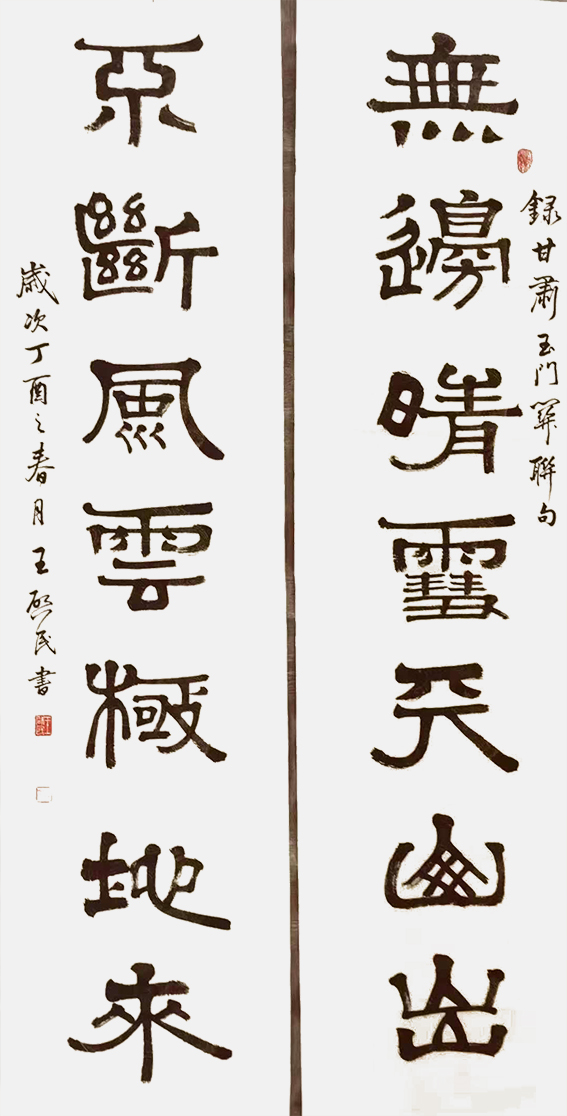 録甘肅玉門關聯句
無邊晴雪天山出
不斷風雲極地來
歲次丁酉之春月王啟民書